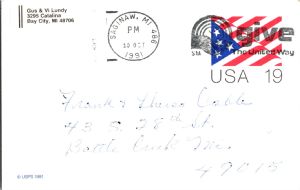 Gus & Vi Lundy
3295 Catalina
Bay City, MI 48706
SAGINAW, MI 486
PM
1991
give
The United Way
USA 19
Frank &
43 S. 28th St.
Battle Creek Mi.
49015
© USPS 1991